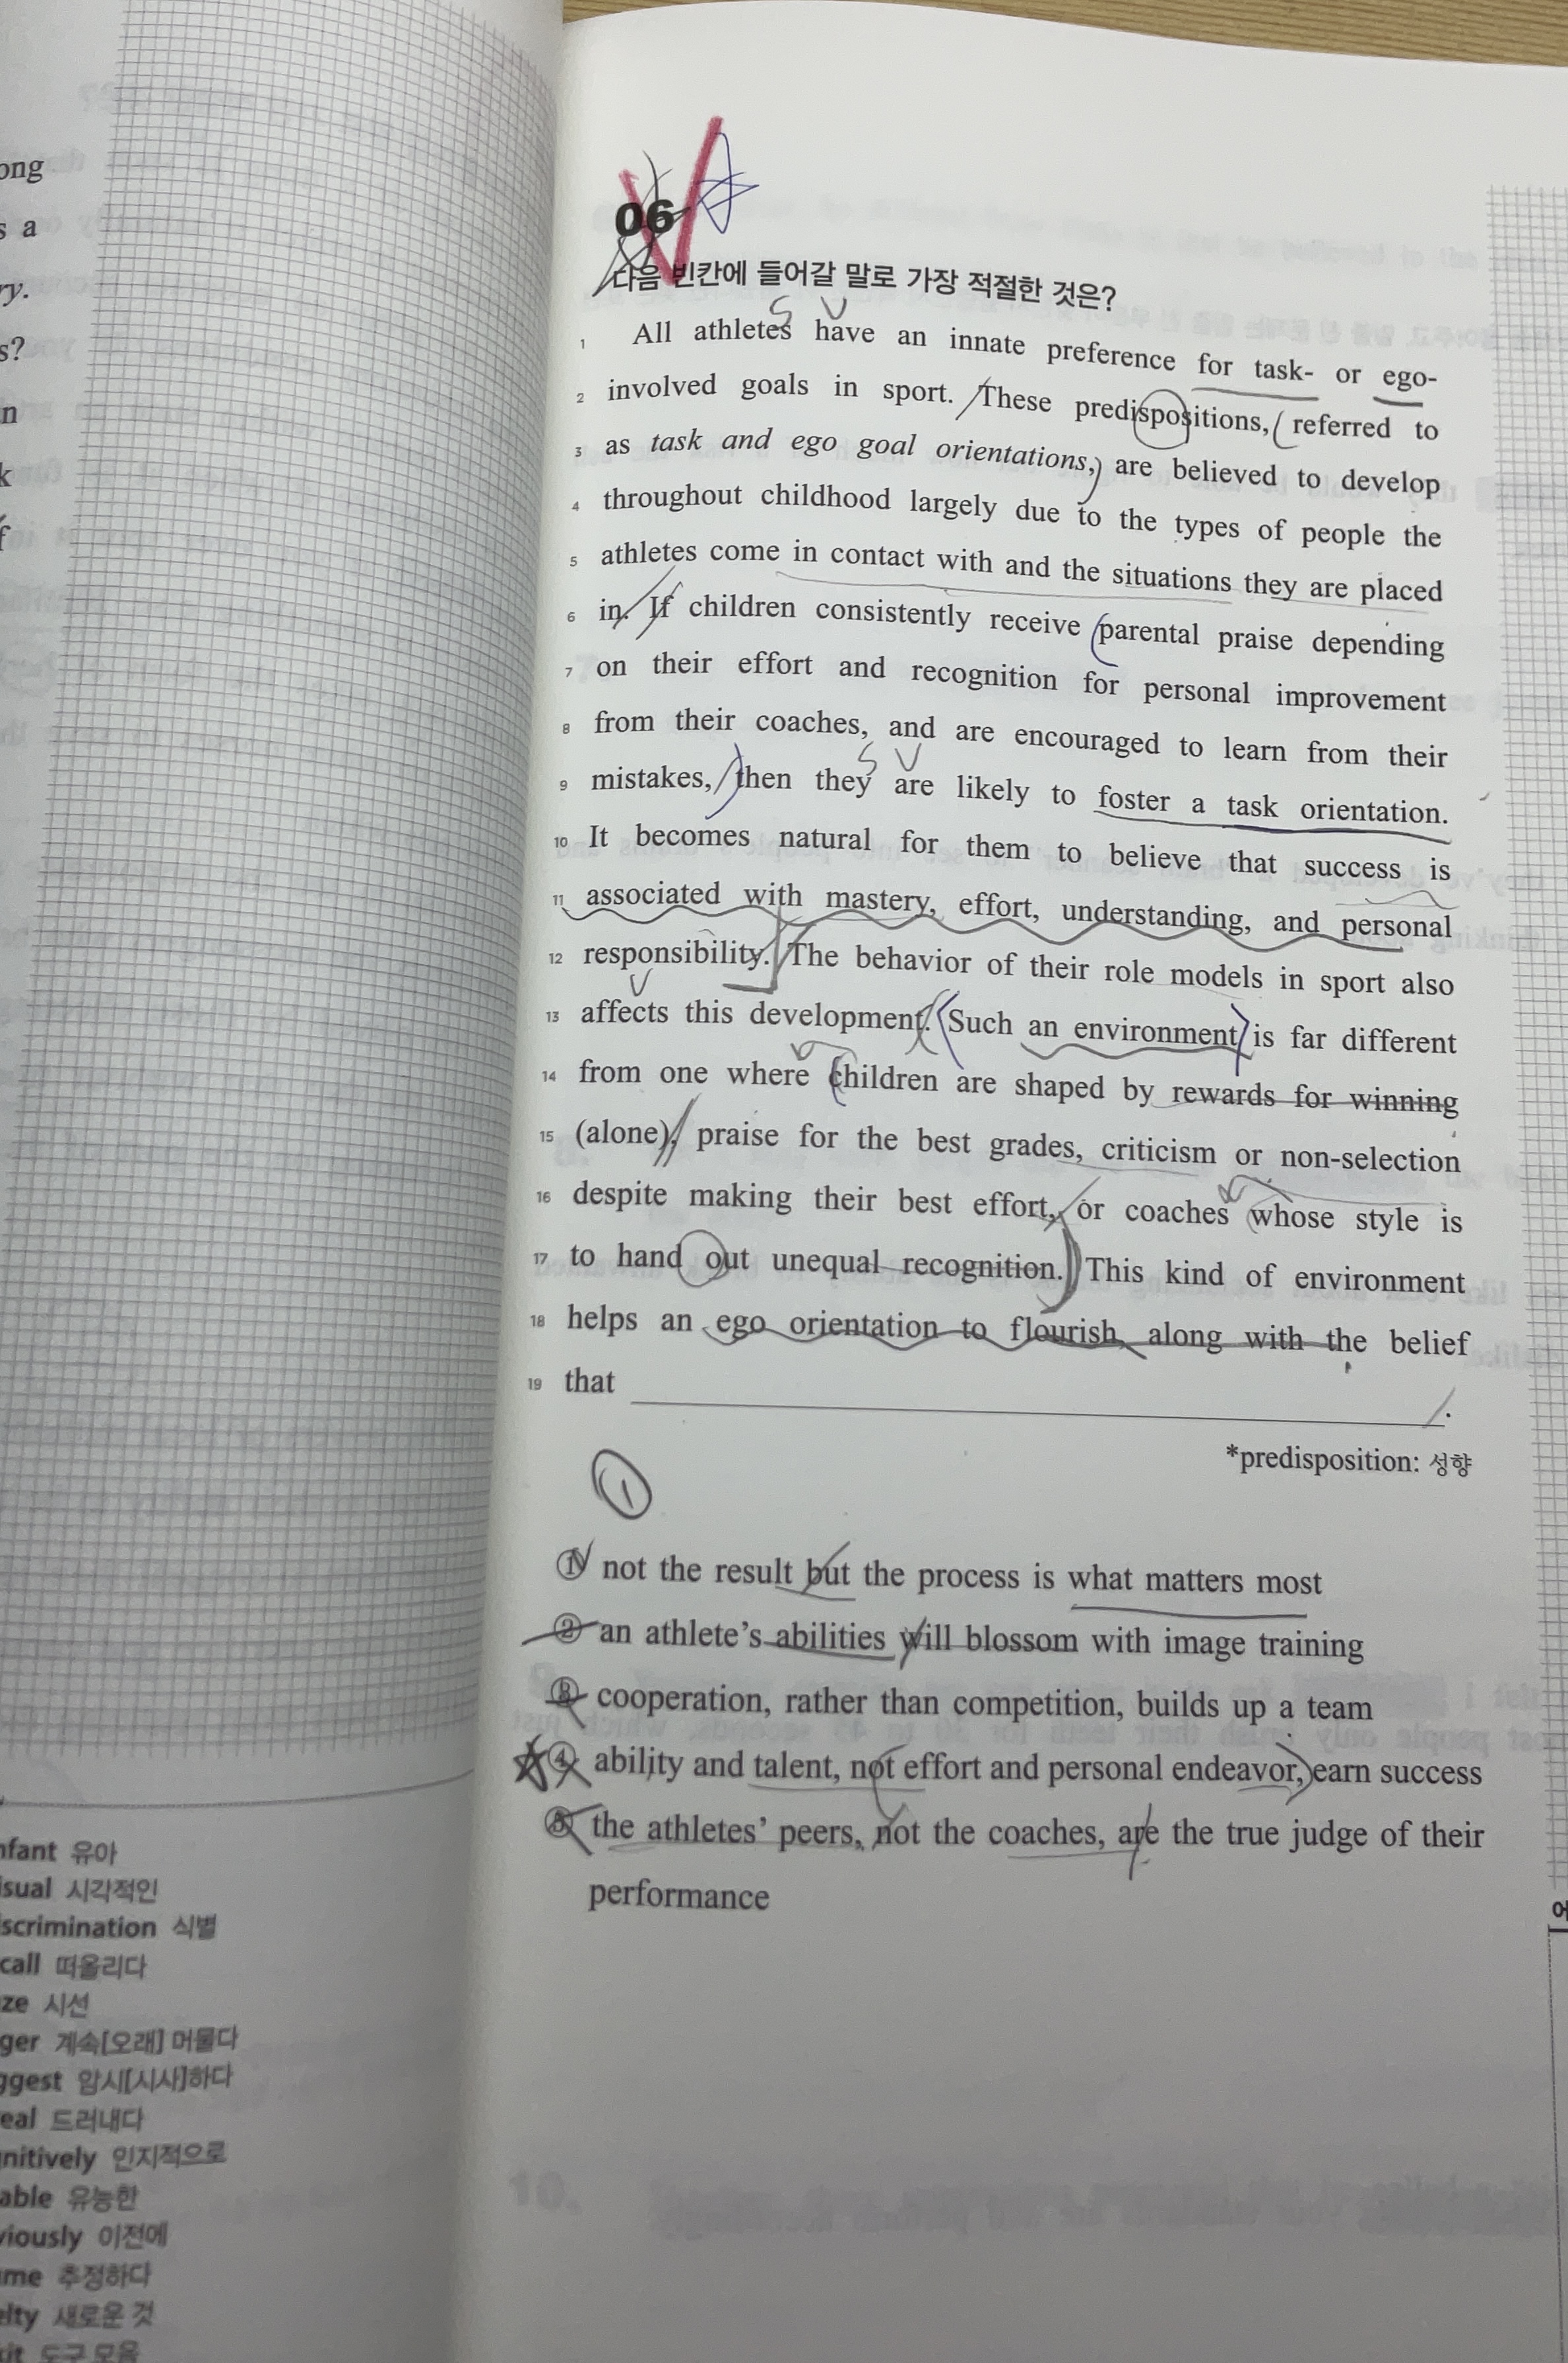 ong
s a
ry.
s?
n
k
f
06
다음 빈칸에 들어갈 말로 가장 적절한 것은?
S V
1 All athletes have an innate preference for task- or ego-
2 involved goals in sport. These predispositions, referred to
3 as task and ego goal orientations, are believed to develop
4 throughout childhood largely due to the types of people the
5 athletes come in contact with and the situations they are placed
6 in. If children consistently receive parental praise depending
7 on their effort and recognition for personal improvement
8 from their coaches, and are encouraged to learn from their
S V
9 mistakes, then they are likely to foster a task orientation.
10 It becomes natural for them to believe that success is
11 associated with mastery, effort, understanding, and personal
12 responsibility. The behavior of their role models in sport also
V
13 affects this development. Such an environment is far different
14 from one where children are shaped by rewards for winning
15 (alone), praise for the best grades, criticism or non-selection
16 despite making their best effort, or coaches whose style is
17 to hand out unequal recognition. This kind of environment
18 helps an ego orientation to flourish, along with the belief
19 that ______.
*predisposition: 성향
①
① not the result but the process is what matters most
② an athlete's abilities will blossom with image training
③ cooperation, rather than competition, builds up a team
④ ability and talent, not effort and personal endeavor, earn success
⑤ the athletes' peers, not the coaches, are the true judge of their
performance
nfant 유아
isual 시각적인
iscrimination 식별
call 떠올리다
ze 시선
ger 계속[오래] 머물다
ggest 암시[시사]하다
eal 드러내다
gnitively 인지적으로
able 유능한
viously 이전에
me 추정하다
elty 새로운 것
kit 도구 모음
어